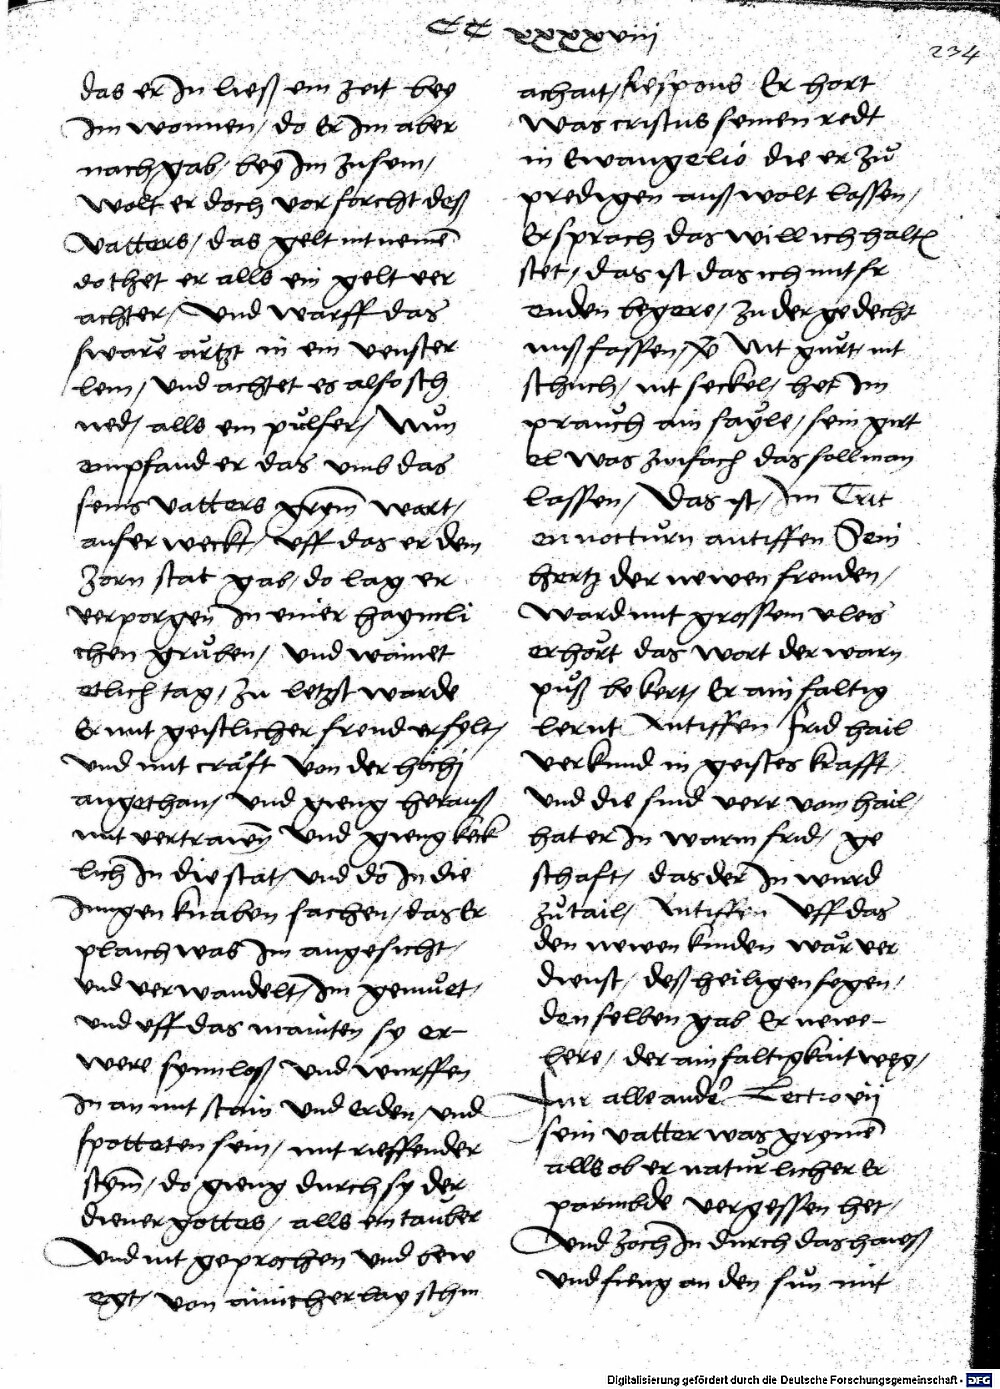 CC xxxxviii
234
das er Jn ließ ein zeit bey
Jm wonnen / do Er Jm aber
nach gab / bey Jm zu sein /
wolt er doch vor forcht deß
vatters / das gelt nit nemē
do thet er alls ein gelt ver
achter / Und warff das
sware ärtzt in ein venster
lein / und achtet es also sch
ned / alls ein pulfer / Nun
empfand er das umb das
seins vatters grym wart /
auferweckt / uff das er dem
zorn stat gab / do lag er
verporgen Jn einer haymli
chen gruben / und wainet
etlich tag / zu letzst warde
Er mit geistlicher freud erfylt /
und mit craft von der höchi
angethan / und gieng herauß
mit vertrawen und gieng keck
lich Jn die stat / und do Jn die
Jungen knaben sachen / das Er
plaich was Jm angesicht /
und verwandelt / Jm gemuet /
und uff das mainten sy er
were synnloß und wurffen
Jn an mit stain und erden / und
spotteten sein / mit rieffender
stym / do gieng durch sy der
diener gottes / alls ein tauber
Und nit geprochen und bew
egt / von ainicherlay schm
achait / Respons Er hort
was cristus seinen redt
in Ewangelio die er zu
predigen auß wolt lassen /
Er sprach das will ich halt
stet / das ist das ich mit fr
euden begere / zu der gedecht
nuß fassen / Nit gurt / nit
schuch / nit seckel / het Jm
prauch ain sayle / sein gurt
el was zwifach das soll man
lassen / Das ist / Jm Trit
en notturn antiffen Sein
hertz der newen freuden /
ward mit grossem vleis
erhört das wort der warn
puß bekert / Er ainfaltig
lernt Antiffen Frid hail
verkund in geistes krafft /
und die sind verr vom hail /
hat er Jn warm frid / ge
schaft / das der Jn wurd
zu tail / Antiffen Uff das
den newen kinden war ver
dienst / deß heiligen segen /
den selben gab Er newe
lere / der ainfaltigkait weg /
Fur alle ander Lectio vij
sein vatter was grymē
alls ob er naturlicher Er
parmbde vergessen het /
Und zoch Jn durch das hawß
und fieng an den sun mit
Digitalisierung gefördert durch die Deutsche Forschungsgemeinschaft - DFG